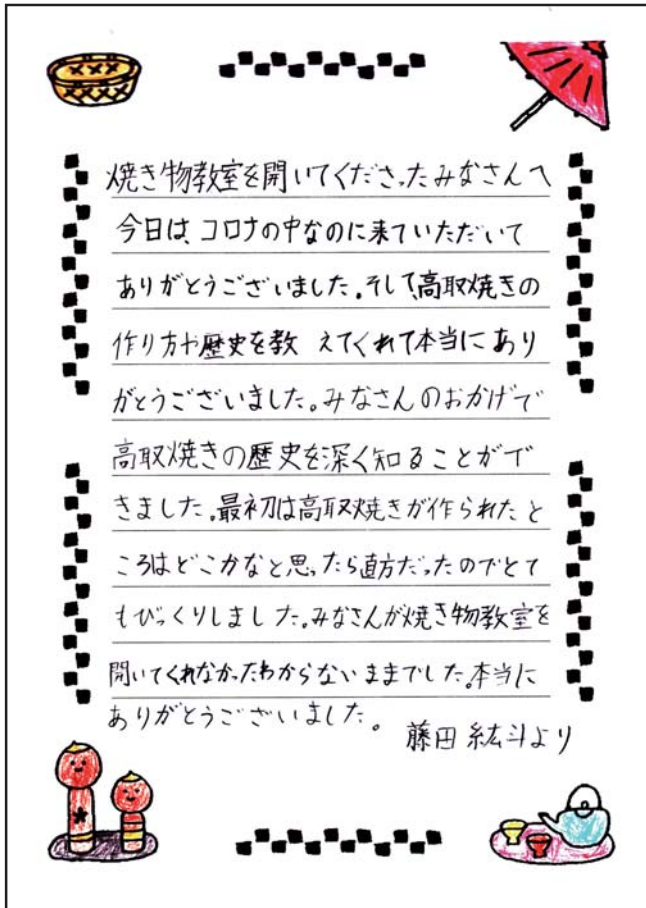 焼き物教室を開いてくださったみなさんへ
今日は、コロナの中なのに来ていただいて
ありがとうございました。そして、高取焼きの
作り方や歴史を教えてくれて本当にあり
がとうございました。みなさんのおかげで
高取焼きの歴史を深く知ることがで
きました。最初は高取焼きが作られたと
ころはどこかなと思ったら直方だったのでとて
もびっくりしました。みなさんが焼き物教室を
開いてくれなかったわからないままでした。本当に
ありがとうございました。
藤田 紘斗より